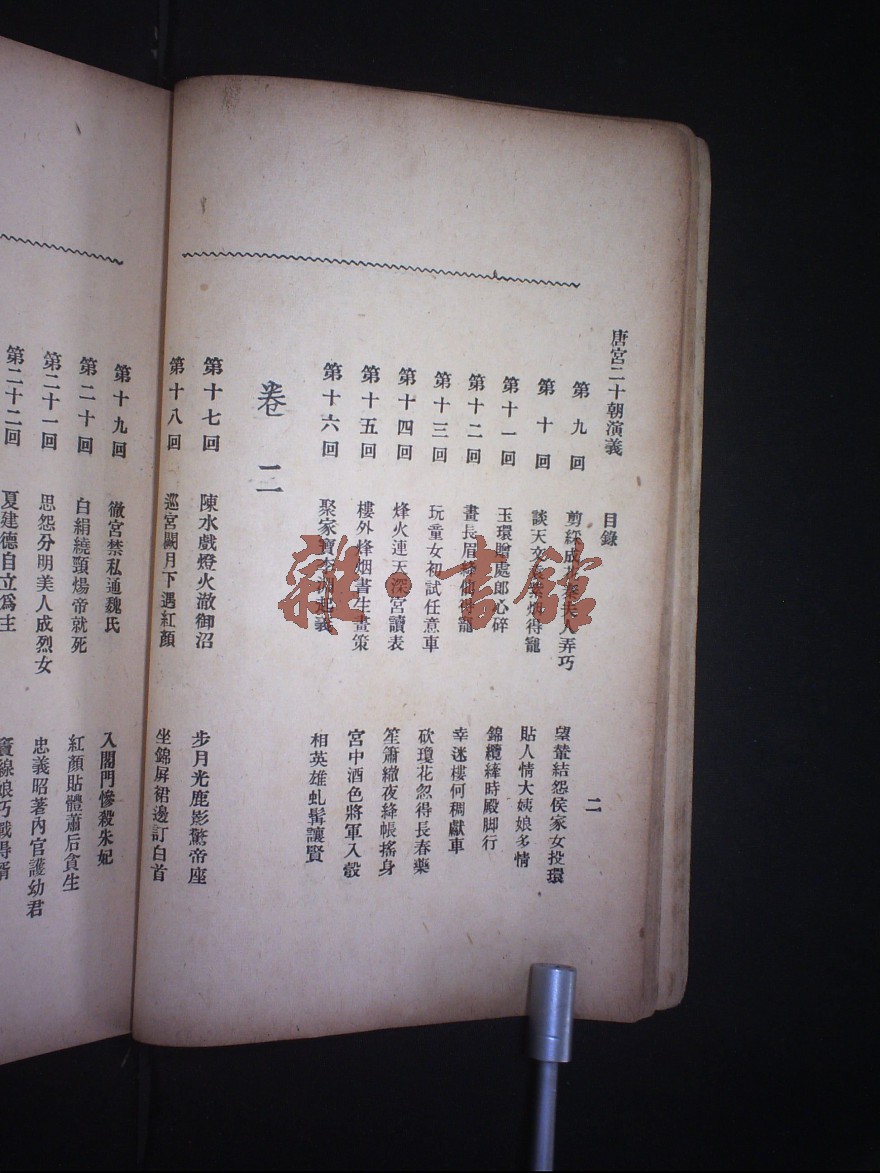 唐宮二十朝演義
目錄
二
第九回 剪綵成花秦夫人弄巧 望輦結怨侯家女投環
第十回 談天交袁紫煙得寵 貼人情大姨娘多情
第十一回 玉環贈處郎心碎 錦纜絳時殿脚行
第十二回 畫長眉絳仙得寵 幸迷樓何稠獻車
第十三回 玩童女初試任意車 砍瓊花忽得長春藥
第十四回 烽火連天深宮讀表 笙簫徹夜絳帳搖身
第十五回 樓外烽烟書生畫策 宮中酒色將軍入彀
第十六回 聚家寶李淵起義 相英雄虬髯讓賢
卷二
第十七回 陳水戲燈火澈御沼 步月光鹿影驚帝座
第十八回 巡宮闕月下遇紅顏 坐錦屏裙邊訂白首
第十九回 徹宮禁私通魏氏 入閣門慘殺朱妃
第二十回 白絹繞頸煬帝就死 紅顏貼體蕭后貪生
第二十一回 思怨分明美人成烈女 忠義昭著內官護幼君
第二十二回 夏建德自立為主 竇線娘巧戰得婿
雜·書館